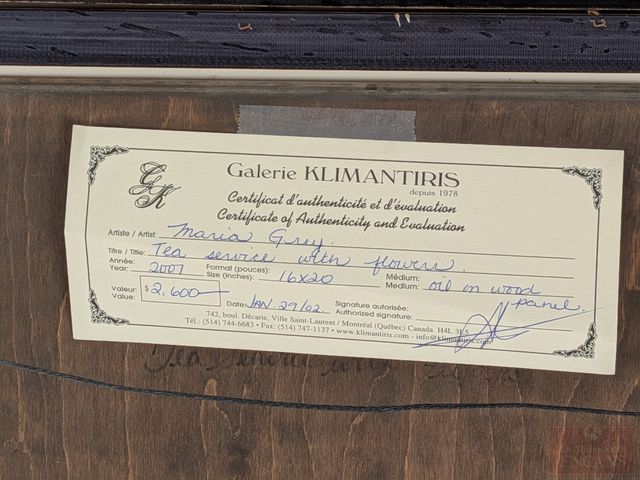 GK
Galerie KLIMANTIRIS
depuis 1978
Certificat d'authenticité et d'évaluation
Certificate of Authenticity and Evaluation
Artiste / Artist: Maria Grey.
Titre / Title: Tea service with flowers.
Année:
Year: 2001 Format (pouces):
Size (inches): 16x20 Médium:
Medium: oil on wood panel.
Valeur:
Value: $2,600 Date: JAN 29/02. Signature autorisée:
Authorized signature:
742, boul. Décarie, Ville Saint-Laurent / Montréal (Québec) Canada H4L 3L5
Tél.: (514) 744-6683 • Fax: (514) 747-1137 • www.klimantiris.com - info@klimantiris.com
Tea service with